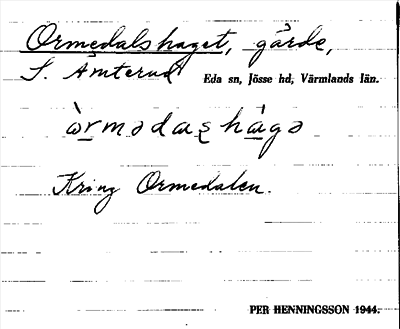 Ormedalshaget, gärde,
S. Åmterud Eda sn, Jösse hd, Värmlands län.
òrmədaʂhágə
Kring Ormedalen.
PER HENNINGSSON 1944.